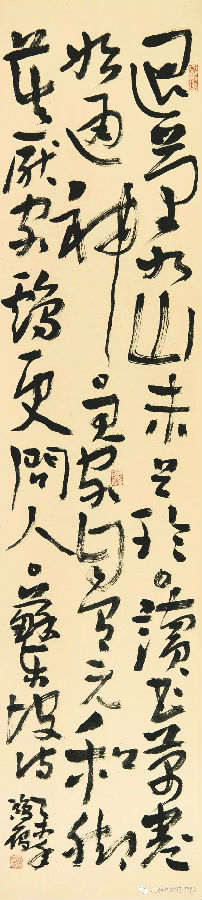 退筆如山未足珍讀書萬卷
始通神君家自有元和脚
莫厭家鷄更問人蘇東坡詩